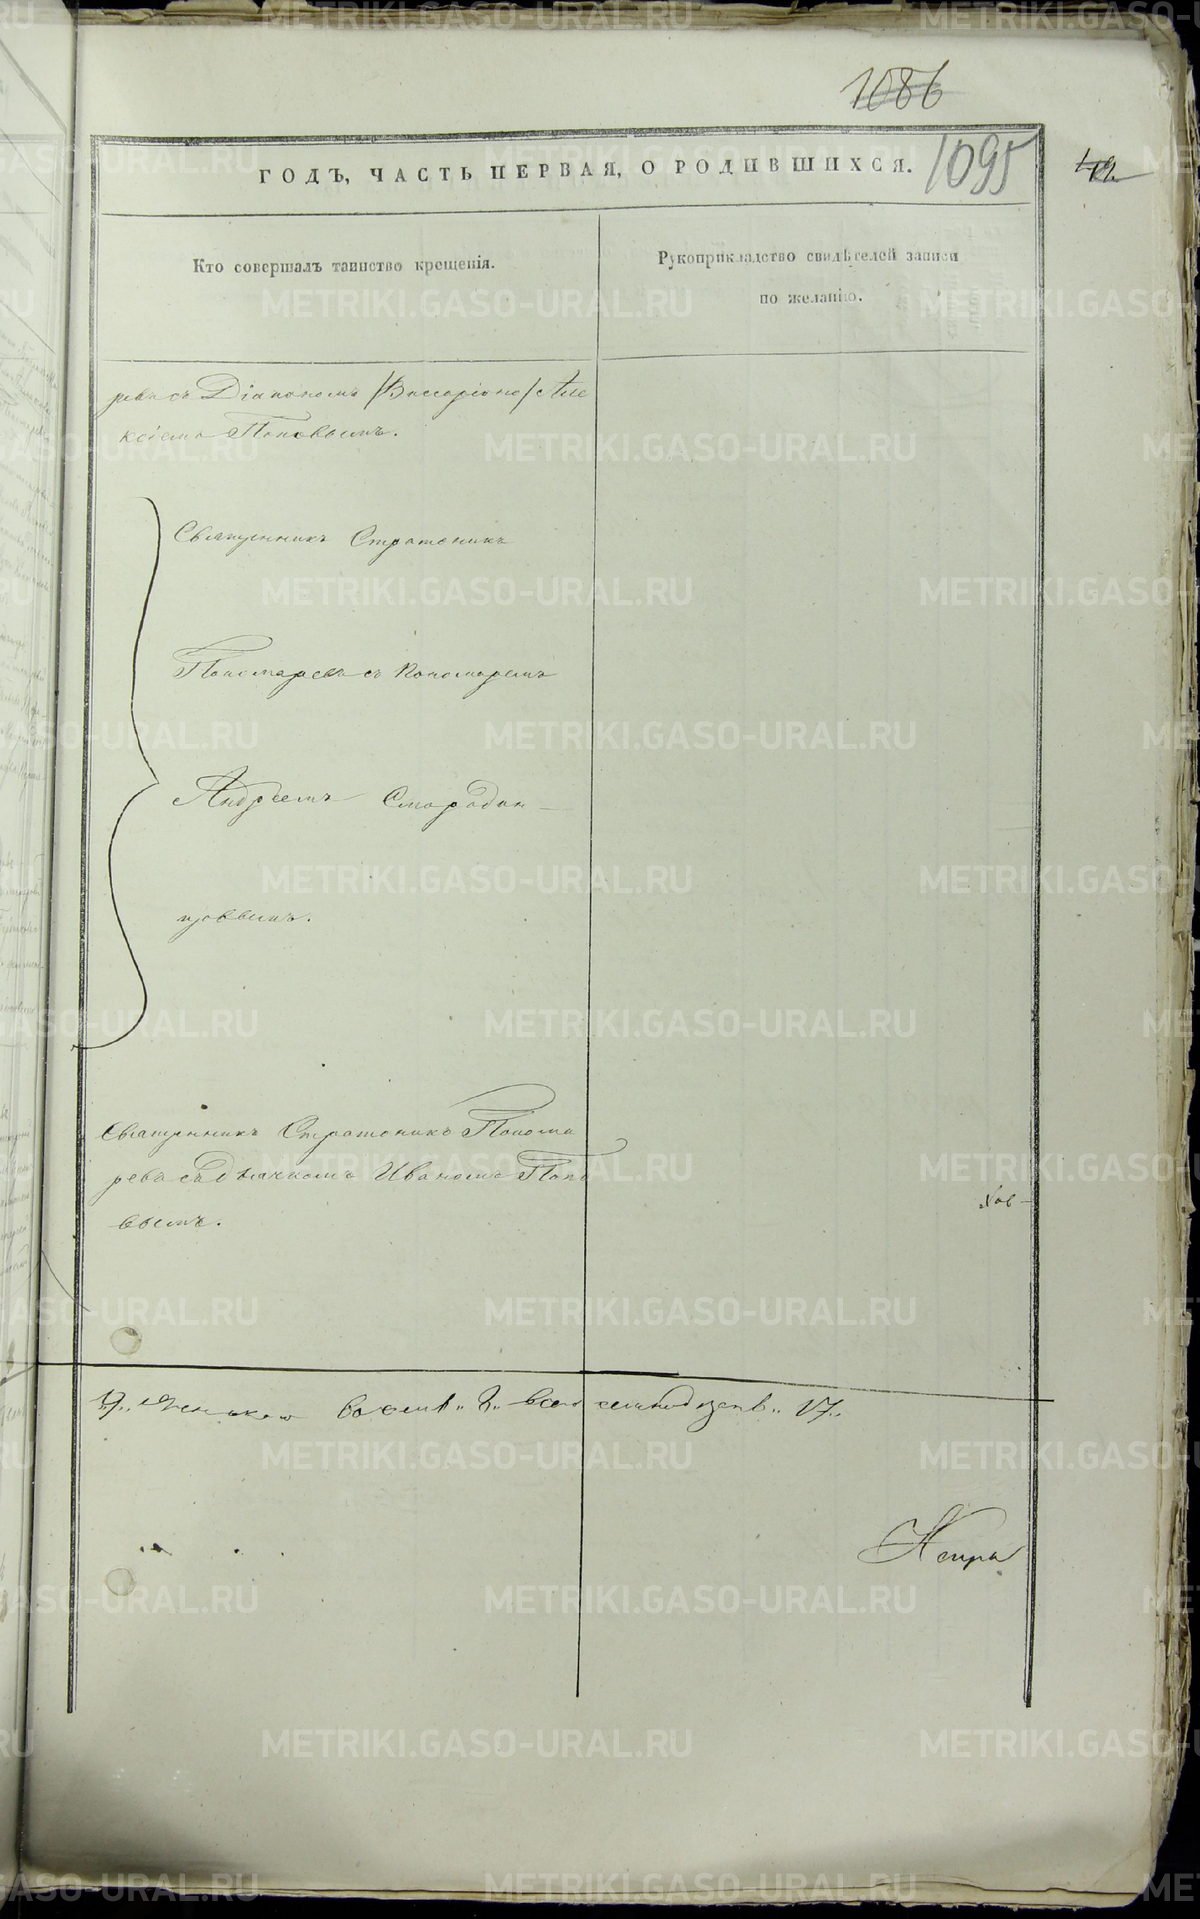 1086
ГОДЪ, ЧАСТЬ ПЕРВАЯ, О РОДИВШИХСЯ.
1095
Кто совершалъ таинство крещенія.
Рукоприкладство свидѣтелей записи
по желанію.
ревъ съ Діакономъ /Виссаріоно/ Але
ксіемъ Поповымъ.
Священникъ Стратоникъ
Пономаревъ съ Пономаремъ
Андреемъ Смородин-
цовымъ.
Священникъ Стратоникъ Понома
ревъ съ Дьячкомъ Иваномъ Попо
вымъ.
9. Женскаго восемь 8. всего семнадцать 17.
METRIKI.GASO-URAL.RU